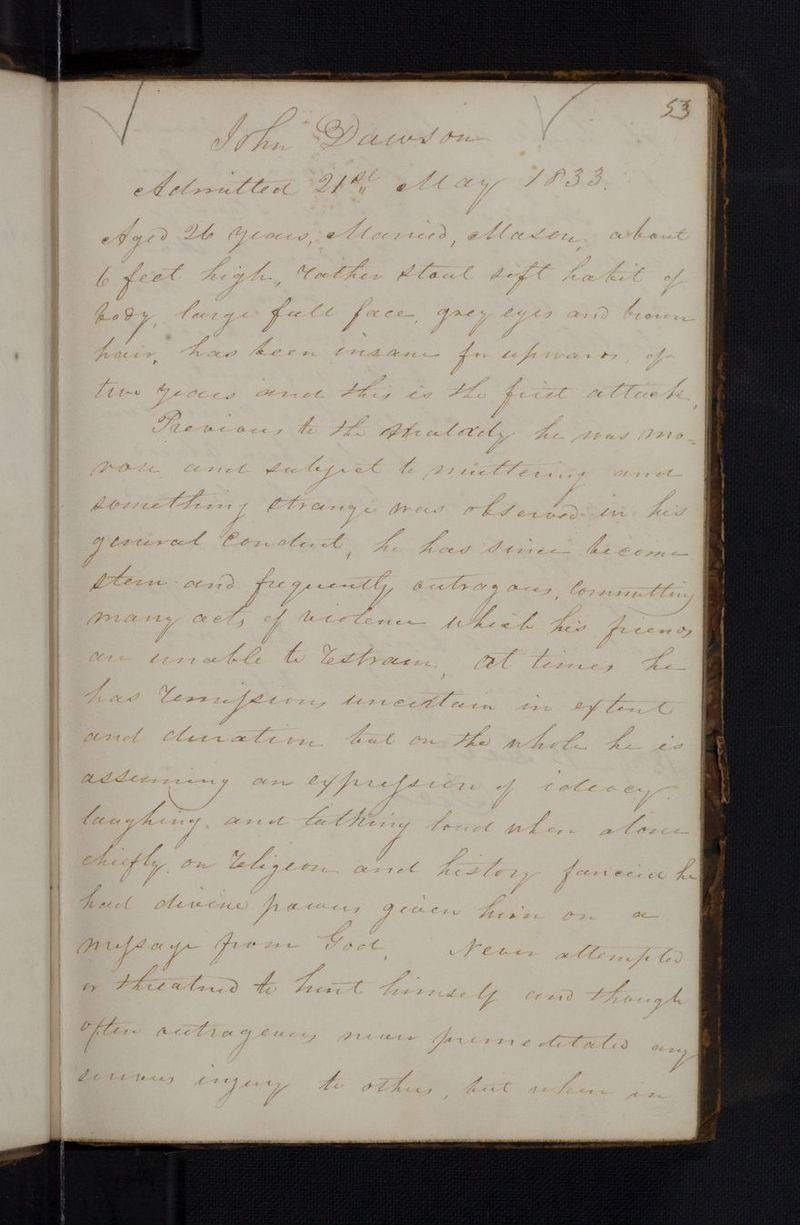 53
John Dawson
Admitted 21st May 1833.
Aged 26 years, Married, Mason, about
6 feet high, rather stout soft habit of
body, large full face, grey eyes and brown
hair, has been insane for upwards of
two years and this is the first attack,
Previous to the Malady he was mo-
rose and subject to muttering and
something strange was observed in his
general conduct, he has since become
stern and frequently outragous, Committing
many acts of violence which his friends
are unable to restrain, at times he
has remissions uncertain in extent
and duration but on the whole he is
assuming an expression of ideocy.
laughing and talking loud when alone
chiefly on Religeon and history fancied he
had divine powers given him on a
message from God. Never attempted
or threatned to hurt himself and though
often outrageous never premeditated any
serious injury to others, but when in